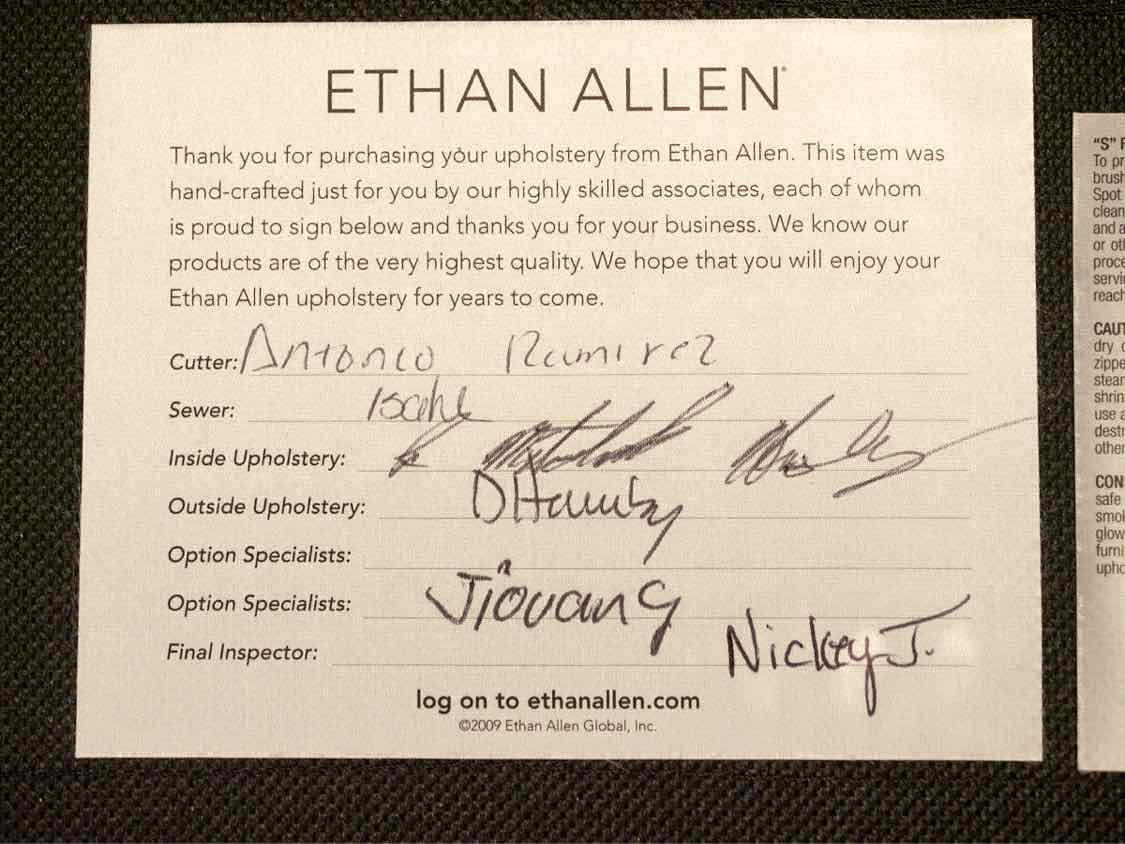 ETHAN ALLEN®
Thank you for purchasing your upholstery from Ethan Allen. This item was
hand-crafted just for you by our highly skilled associates, each of whom
is proud to sign below and thanks you for your business. We know our
products are of the very highest quality. We hope that you will enjoy your
Ethan Allen upholstery for years to come.
Cutter: Antonio Ramirez
Sewer:
Inside Upholstery:
Outside Upholstery: DHamby
Option Specialists:
Option Specialists:
Final Inspector: Nickey J.
log on to ethanallen.com
©2009 Ethan Allen Global, Inc.
"S"
To
Spot
clean
and
or
reach
dry
use
other
safe